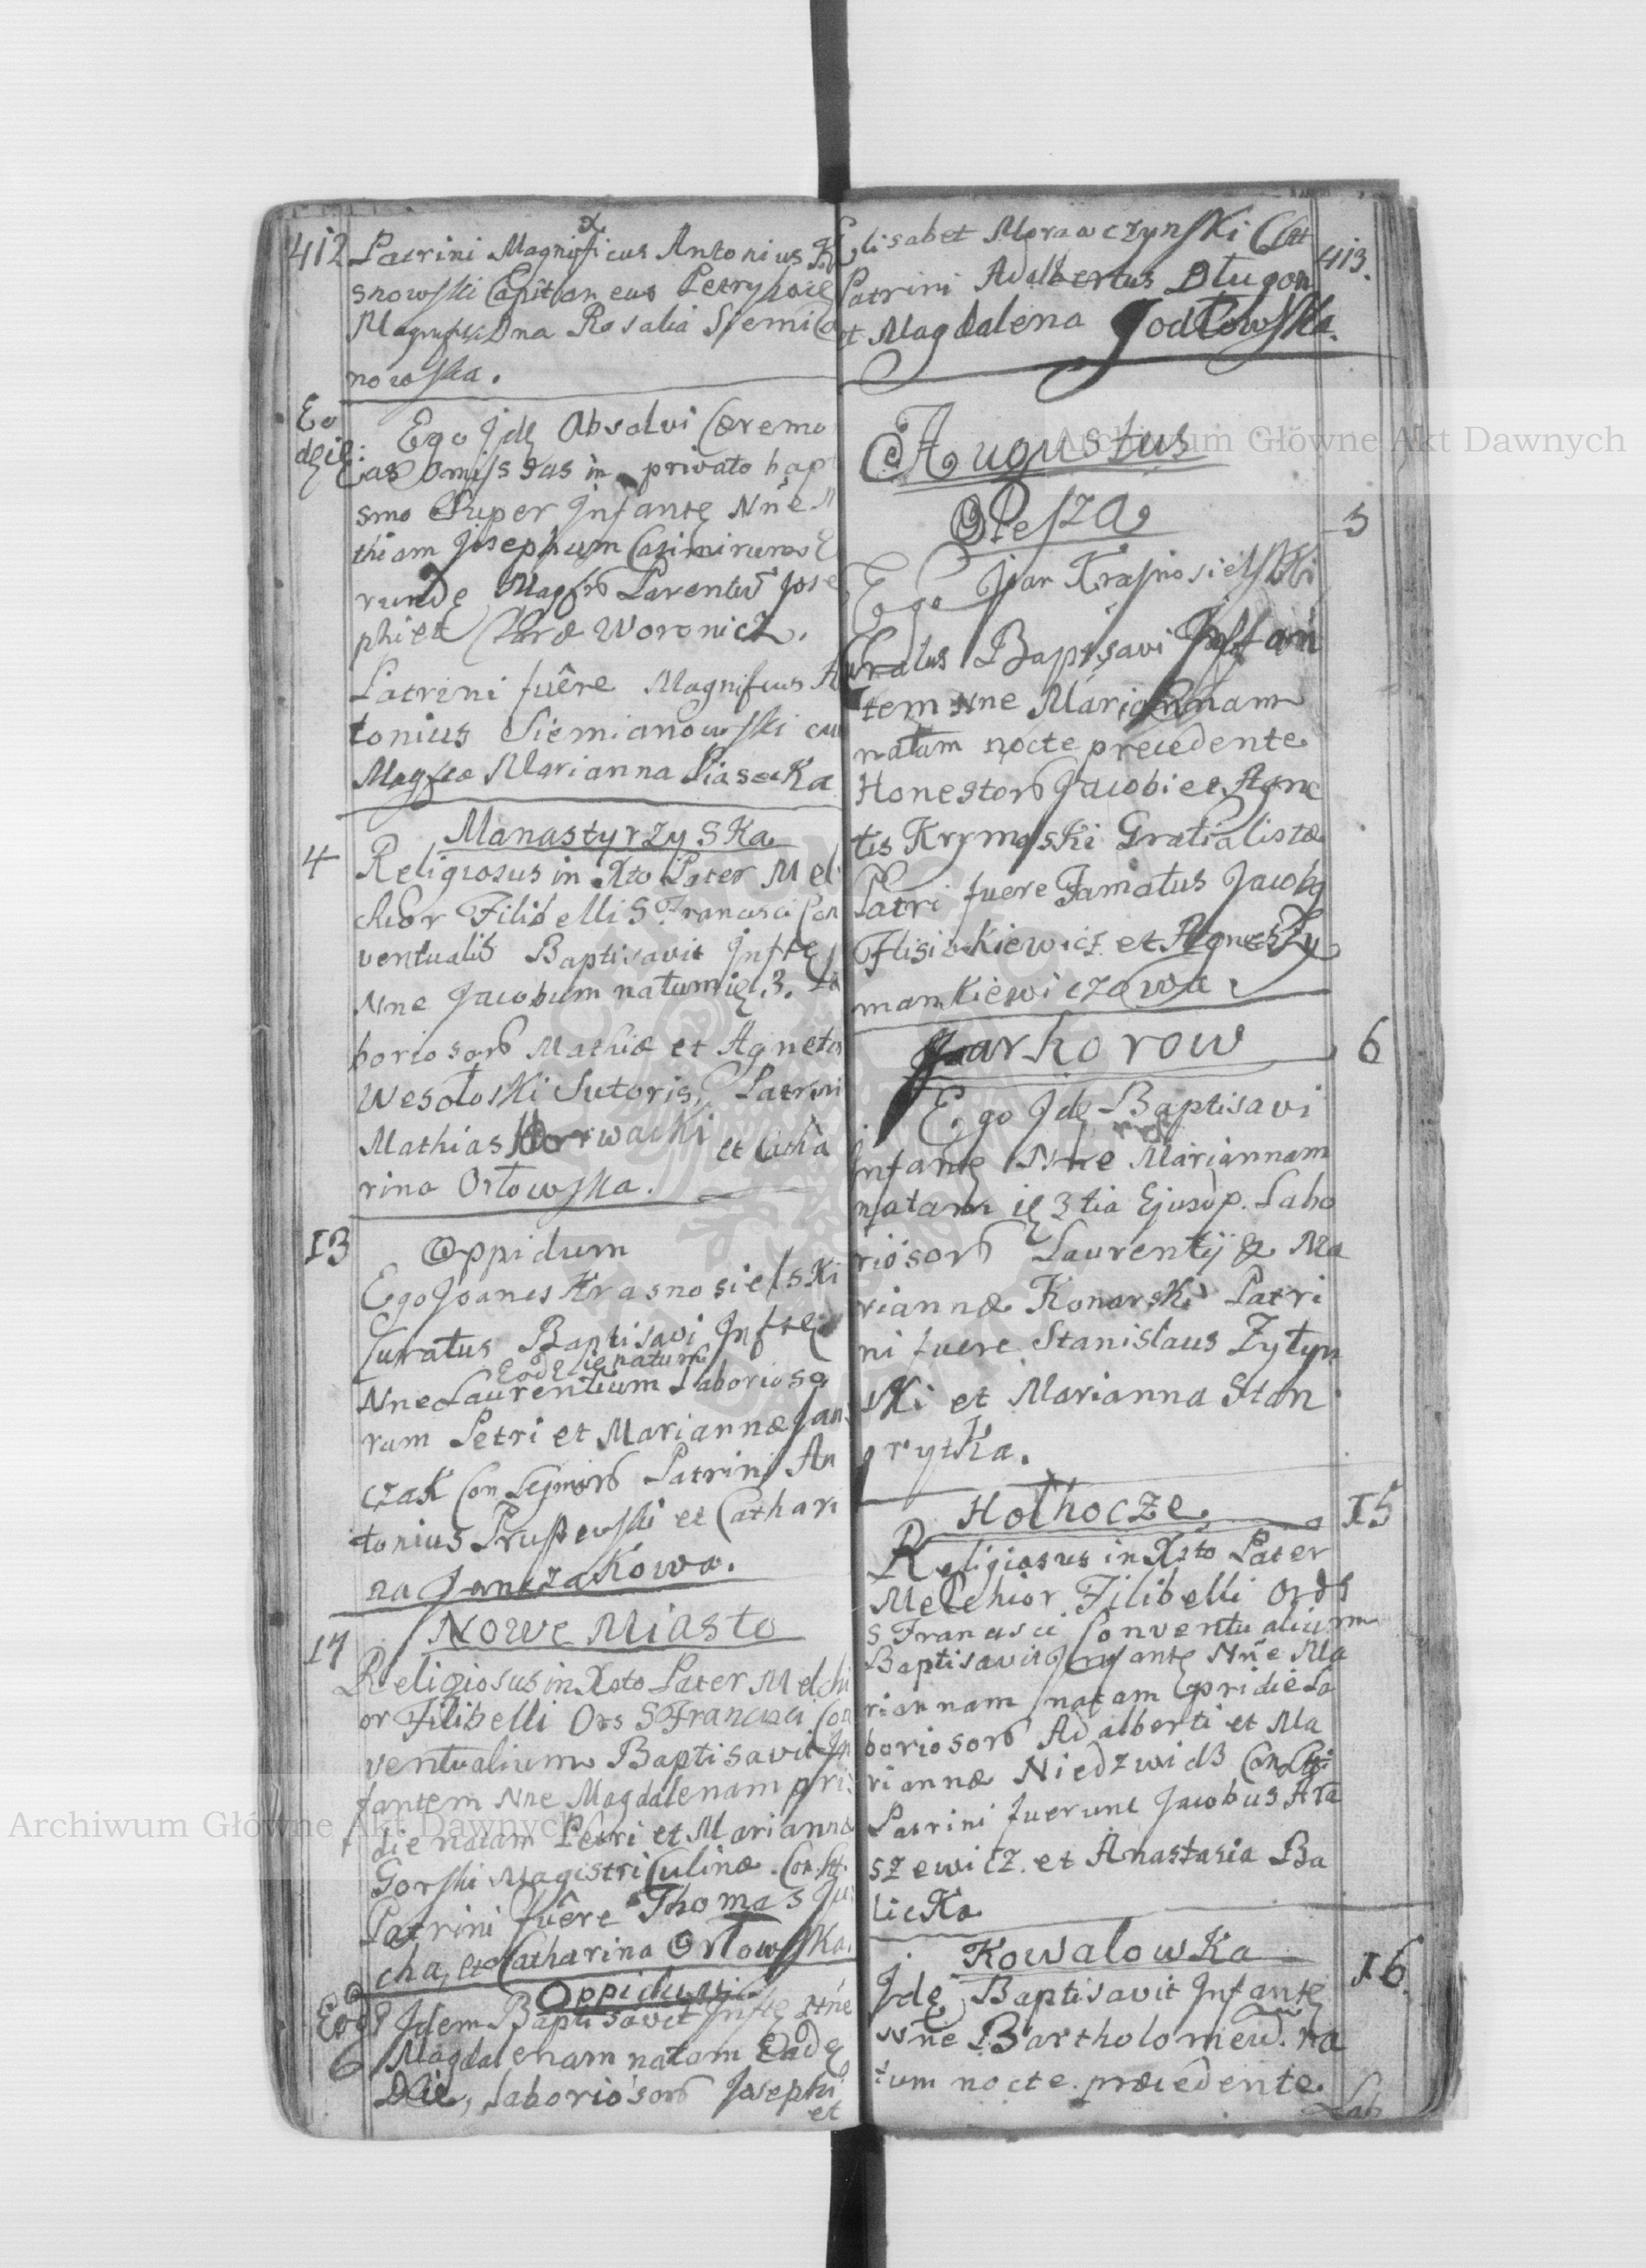 412
Patrini Magnificus Antonius K
snowski Capitaneus Petry
Magnfca Dna Rosalia Siemia
nowska.
Eo
die
Ego Jdę Absolvi Cæremo
ias omissas in privato bapt
smo Super Infantę Nne M
thiam Josephum Casimirum
Magfcor Parentū Jose
phi et Claræ Woronicz.
Patrini fuêre Magnificus A
tonius Siemianowski cum
Magfca Marianna Piasecka
4
Manastyrzyska
Religiosus in Xto Pater Mel
chior Filibelli S Francisci Con
ventualis Baptisavit Inftę
Nne Jacobum natum ię 3. La
boriosorū Mathiæ et Agnetis
Wesołoski Sutoris, Patrini
Mathias Horwacki et Catha
rina Orłowska.
13
Oppidum
Ego Joanes Krasnosielski
Curatus Baptisavi Inftę
Eodę die natum
Nne Laurentium Laborioso
rum Petri et Mariannæ Jan
czak Con Legmorū Patrini An
tonius Prusewski et Cathari
na Janczakowa.
17
Nowe Miasto
Religiosus in Xsto Pater Melchi
or Filibelli Ors S Francisci Con
ventualium Baptisavit In
fantem Nne Magdalenam pri
die natam Petri et Mariannæ
Gorski Magistri Culinæ. Con. Lgt.
Patrini fuêre Thomas Ju
cha, et Catharina Orłowska.
Oppidum
Eod
Jdem Baptisavit Inftę Nne
6
Magdalenam natam Eadę
Die, Laboriosorū Josephi
et
Elisabet Morawczynski C Lgt
413.
Patrini Adalbertus Długon
et Magdalena Godłowska.
Augustus
Olesza
5
Ego Joan Krasnosielski
Curatus Baptisavi Infan
tem Nne Mariannam
natam nocte precedente
Honestorū Jacobi et Agne
tis Krymski Gratialistæ
Patri fuere Famatus Jacobq
Flisinkiewicz et Agnes Szy
mankiewiczowa.
Jarhorow
6
Ego Jdę Baptisavi
Infantę Nne Mariannam
natam ię 3tia Ejusdę. Labo
riosorū Laurentij & Ma
riannæ Konarski Patri
ni fuere Stanislaus Zytyn
ski et Marianna Stan
rytka.
Hołhocze
15
Religiosus in Xsto Pater
Melchior Filibelli Ords
S Francisci Conventualium
Baptisavit Infantę Nne Ma
riannam natam pridie La
boriosorū Adalberti et Ma
riannæ Niedzwidz Con Lgti
Patrini fuerunt Jacobus Ara
szewicz. et Anastasia Ba
licka
Kowalowka
16
Jdę Baptisavit Infantę
Nne Bartholomeū. na
tum nocte præcedente
Lab